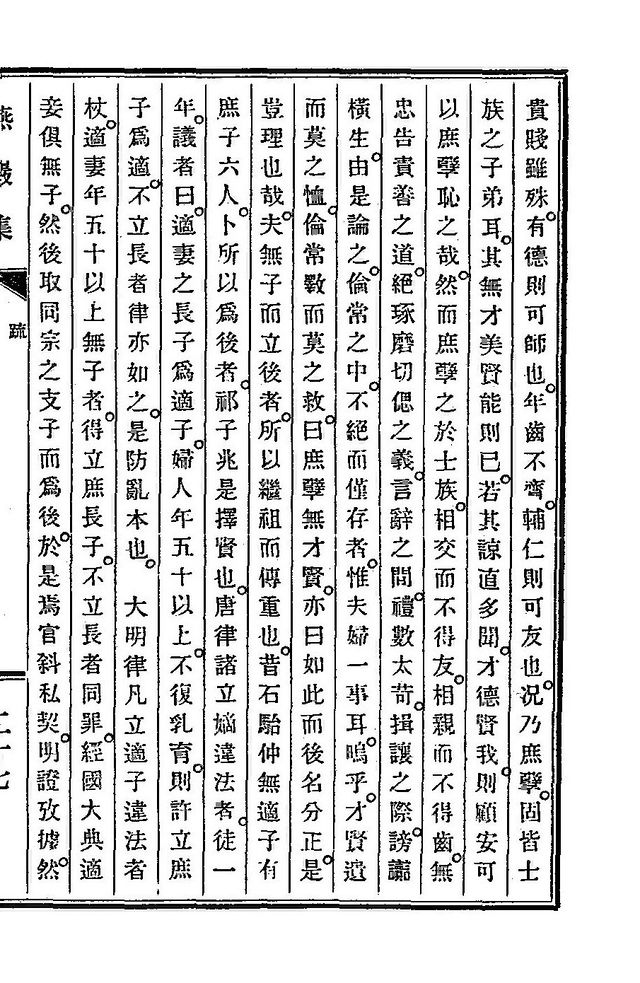 貴賤雖殊。有德則可師也。年齒不齊。輔仁則可友也。况乃庶孼。固皆士
族之子弟耳。其無才美賢能則已。若其諒直多聞。才德賢我。則顧安可
以庶孼恥之哉。然而庶孼之於士族。相交而不得友。相親而不得齒。無
忠告責善之道。絕琢磨切偲之義。言辭之間。禮數太苛。揖讓之際。謗讟
橫生。由是論之。倫常之中。不絕而僅存者。惟夫婦一事耳。嗚乎。才賢遺
而莫之恤。倫常斁而莫之救。曰庶孼無才賢。亦曰如此而後名分正。是
豈理也哉。夫無子而立後者。所以繼祖而傳重也。昔石駘仲無適子。有
庶子六人。卜所以爲後者。祁子兆。是擇賢也。唐律諸立嫡違法者。徒一
年。議者曰。適妻之長子爲適子。婦人年五十以上。不復乳育。則許立庶
子爲適。不立長者律亦如之。是防亂本也。 大明律凡立適子違法者
杖。適妻年五十以上無子者。得立庶長子。不立長者同罪。經國大典適
妾俱無子。然後取同宗之支子而爲後。於是焉官斜私契。明證攷據。然
燕巖集
疏
二十七